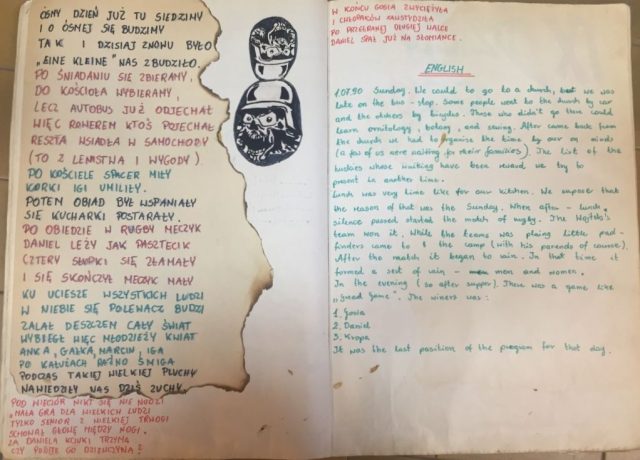 ÓSMY DZIEŃ JUŻ TU SIEDZIMY
I O ÓSMEJ SIĘ BUDZIMY
TAK I DZISIAJ ZNOWU BYŁO
„EINE KLEINE" NAS ZBUDZIŁO.
PO ŚNIADANIU SIĘ ZBIERAMY,
DO KOŚCIOŁA WYBIERAMY,
LECZ AUTOBUS JUŻ ODJECHAŁ
WIĘC ROWEREM KTOŚ POJECHAŁ
RESZTA WSIADŁA W SAMOCHODY
(TO Z LENISTWA I WYGODY)
PO KOŚCIELE SPACER MIŁY
KORKI IGI UMILIŁY.
POTEM OBIAD BYŁ WSPANIAŁY
SIĘ KUCHARKI POSTARAŁY.
PO OBIEDZIE W RUGBY MECZYK
DANIEL LEŻY JAK PASZTECIK
CZTERY SŁUPKI SIĘ ZŁAMAŁY
I SIĘ SKOŃCZYŁ MECZYK MAŁY
KU UCIESZE WSZYSTKICH LUDZI
W NIEBIE SIĘ POLEWACZ BUDZI
ZALAŁ DESZCZEM CAŁY ŚWIAT
WYBIEGŁ WIĘC MŁODZIEŻY KWIAT
ANKA, GAŁKA, MARCIN, IGA
PO KAŁUŻACH RAŹNO ŚMIGA
PODCZAS TAKIEJ WIELKIEJ PLUCHY
NAWIEDZIŁY NAS DZIŚ ZUCHY.
POD WIECZÓR NIKT SIĘ NIE NUDZI
„MAŁA GRA DLA WIELKICH LUDZI
TYLKO SENIOR Z WIELKIEJ TRWOGI
SCHOWAŁ GŁOWĘ MIĘDZY NOGI.
ZA DANIELA KCIUKI TRZYMA
CZY POBIJE GO DZIEWCZYNA?
W KOŃCU GOSIA ZWYCIĘŻYŁA
I CHŁOPAKÓW ZAWSTYDZIŁA
PO PRZEGRANEJ DŁUGIEJ WALCE
DANIEL SPAŁ JUŻ NA SŁOMIANCE.
ENGLISH
1.07.90 Sunday. We could to go to a church, but we was
late on the bus-stop. Some people went to the church by car
and the others by bicycles. Those who didn't go there could
learn ornitology, botany, and sewing. After came back from
the church we had to organise the time by our on minds
(a few of us were waiting for their families). The list of the
luckies whose waiting have been reward we try to
present in another time.
Lunch was very time like for our kitchen. We suposse that
the reason of that was the Sunday. When after-lunch
silence passed started the match of rugby. The Wojtek's
team won it. While the teams was plaing little pad-
finders came to the camp (with his parends of course).
After the match it began to rain. In that time it
formed a sest of rain - men and women.
In the evening (so after supper). There was a game like
„Great Game". The winers was:
1. Gosia
2. Daniel
3. Kropa
It was the last position of the program for that day.